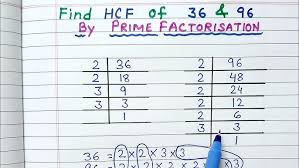 Find HCF of 36 & 96
By PRIME FACTORISATION
2 | 36   2 | 96
2 | 18   2 | 48
3 | 9   2 | 24
3 | 3   2 | 12
1   2 | 6
3 | 3
1
36 = 2 × 2 × 3 × 3
96 = 2 × 2 × 2 × 2 × 2 × 3